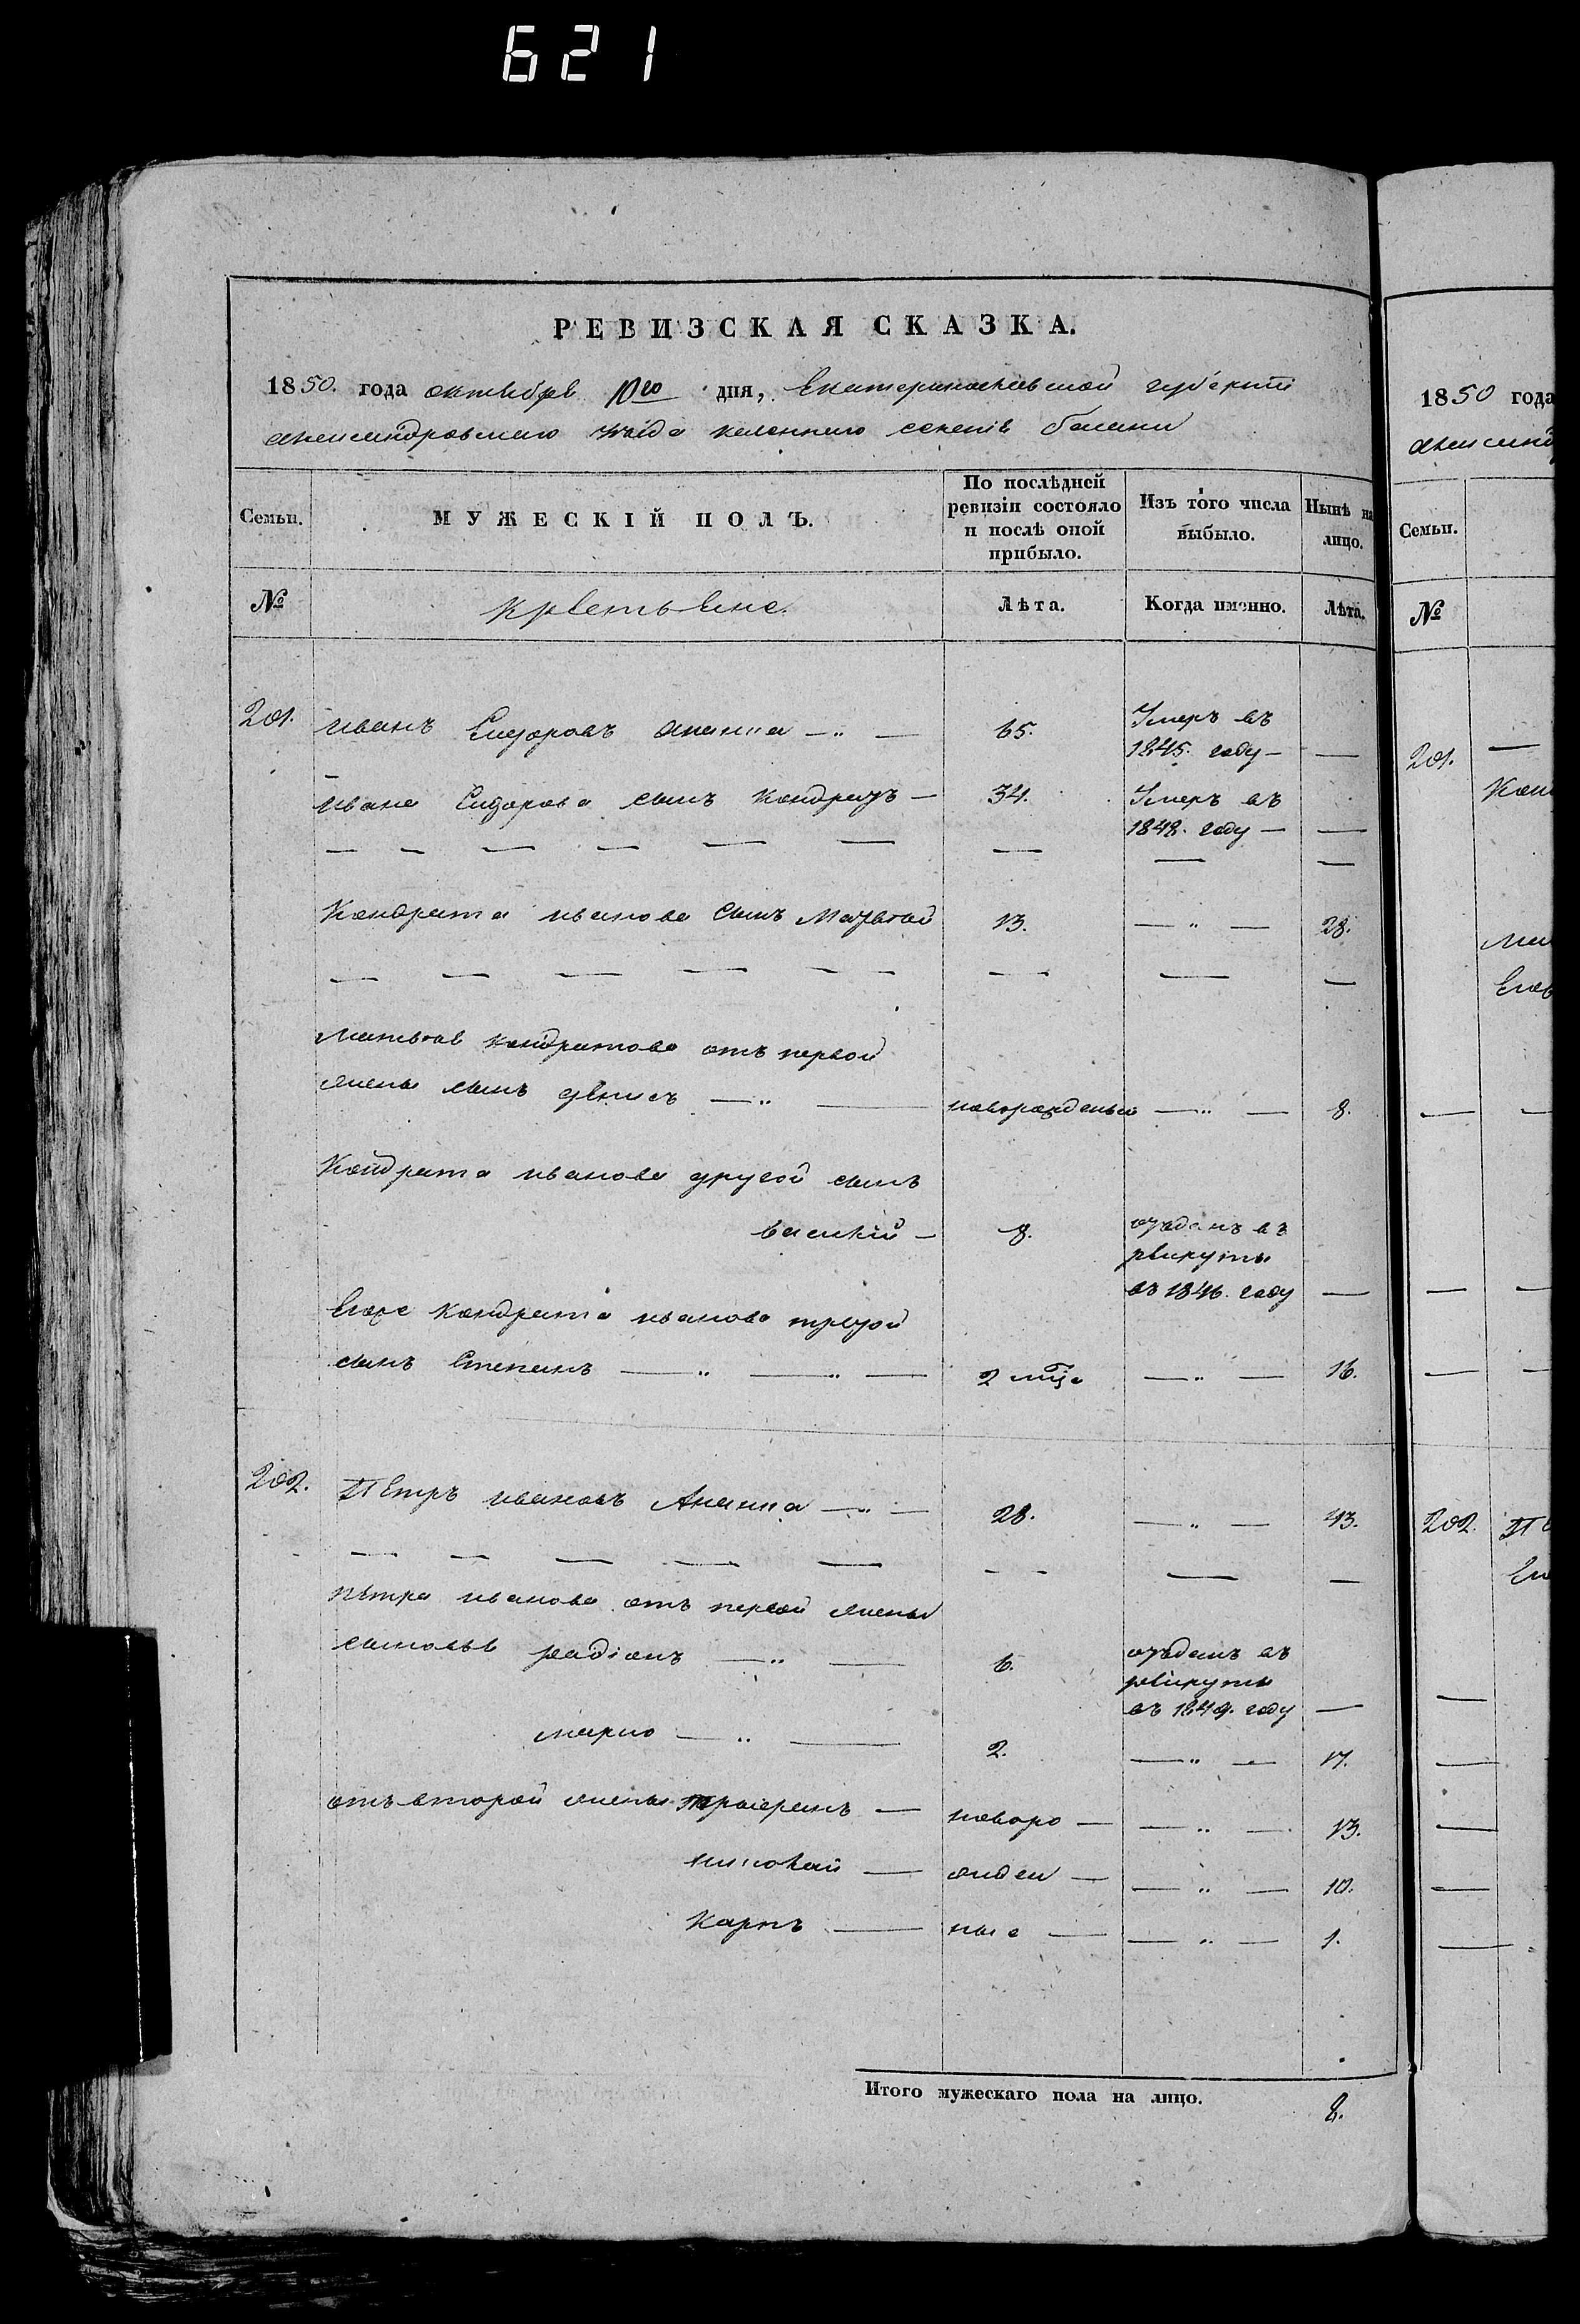 621
РЕВИЗСКАЯ СКАЗКА.
1850. года октября 10го дня, Екатеринославской губернии
александровскаго уезда казеннаго селенія балки
1850 года
Семьи.
МУЖЕСКІЙ ПОЛЪ.
По послѣдней ревизіи состояло и послѣ оной прибыло.
Изъ того числа выбыло.
Нынѣ на лицо.
Семьи.
№
крестьяне.
Лѣта.
Когда именно.
Лѣта.
№
201. иванъ Сидоровъ 65. Умеръ въ
1845. году — —
201.
ивана Сидорова сынъ кондратъ — 34. Умеръ въ
1848. году — —
Кондрата иванова сынъ Матвей 13. — „ — 28.
матвея кондратова отъ первой
жены сынъ денисъ — „ — новорожденый — „ — 8.
Кондрата иванова другой сынъ
василій — 8. отданъ въ
рекруты
въ 1846. году —
Егоже кондрата иванова третой
сынъ Степанъ — „ — „ — 2 мца — „ — 16.
202. Петръ ивановъ — „ — 28. — „ — 43.
202.
петра иванова отъ первой жены
сыновья радіонъ — „ — 6. отданъ въ
рекруты
въ 1849. году —
марко — „ — 2. — „ — 17.
отъ второй жены — новоро — — „ — 13.
николай — жден — — „ — 10.
Карпъ — ные — — „ — 1.
Итого мужескаго пола на лицо. 8.